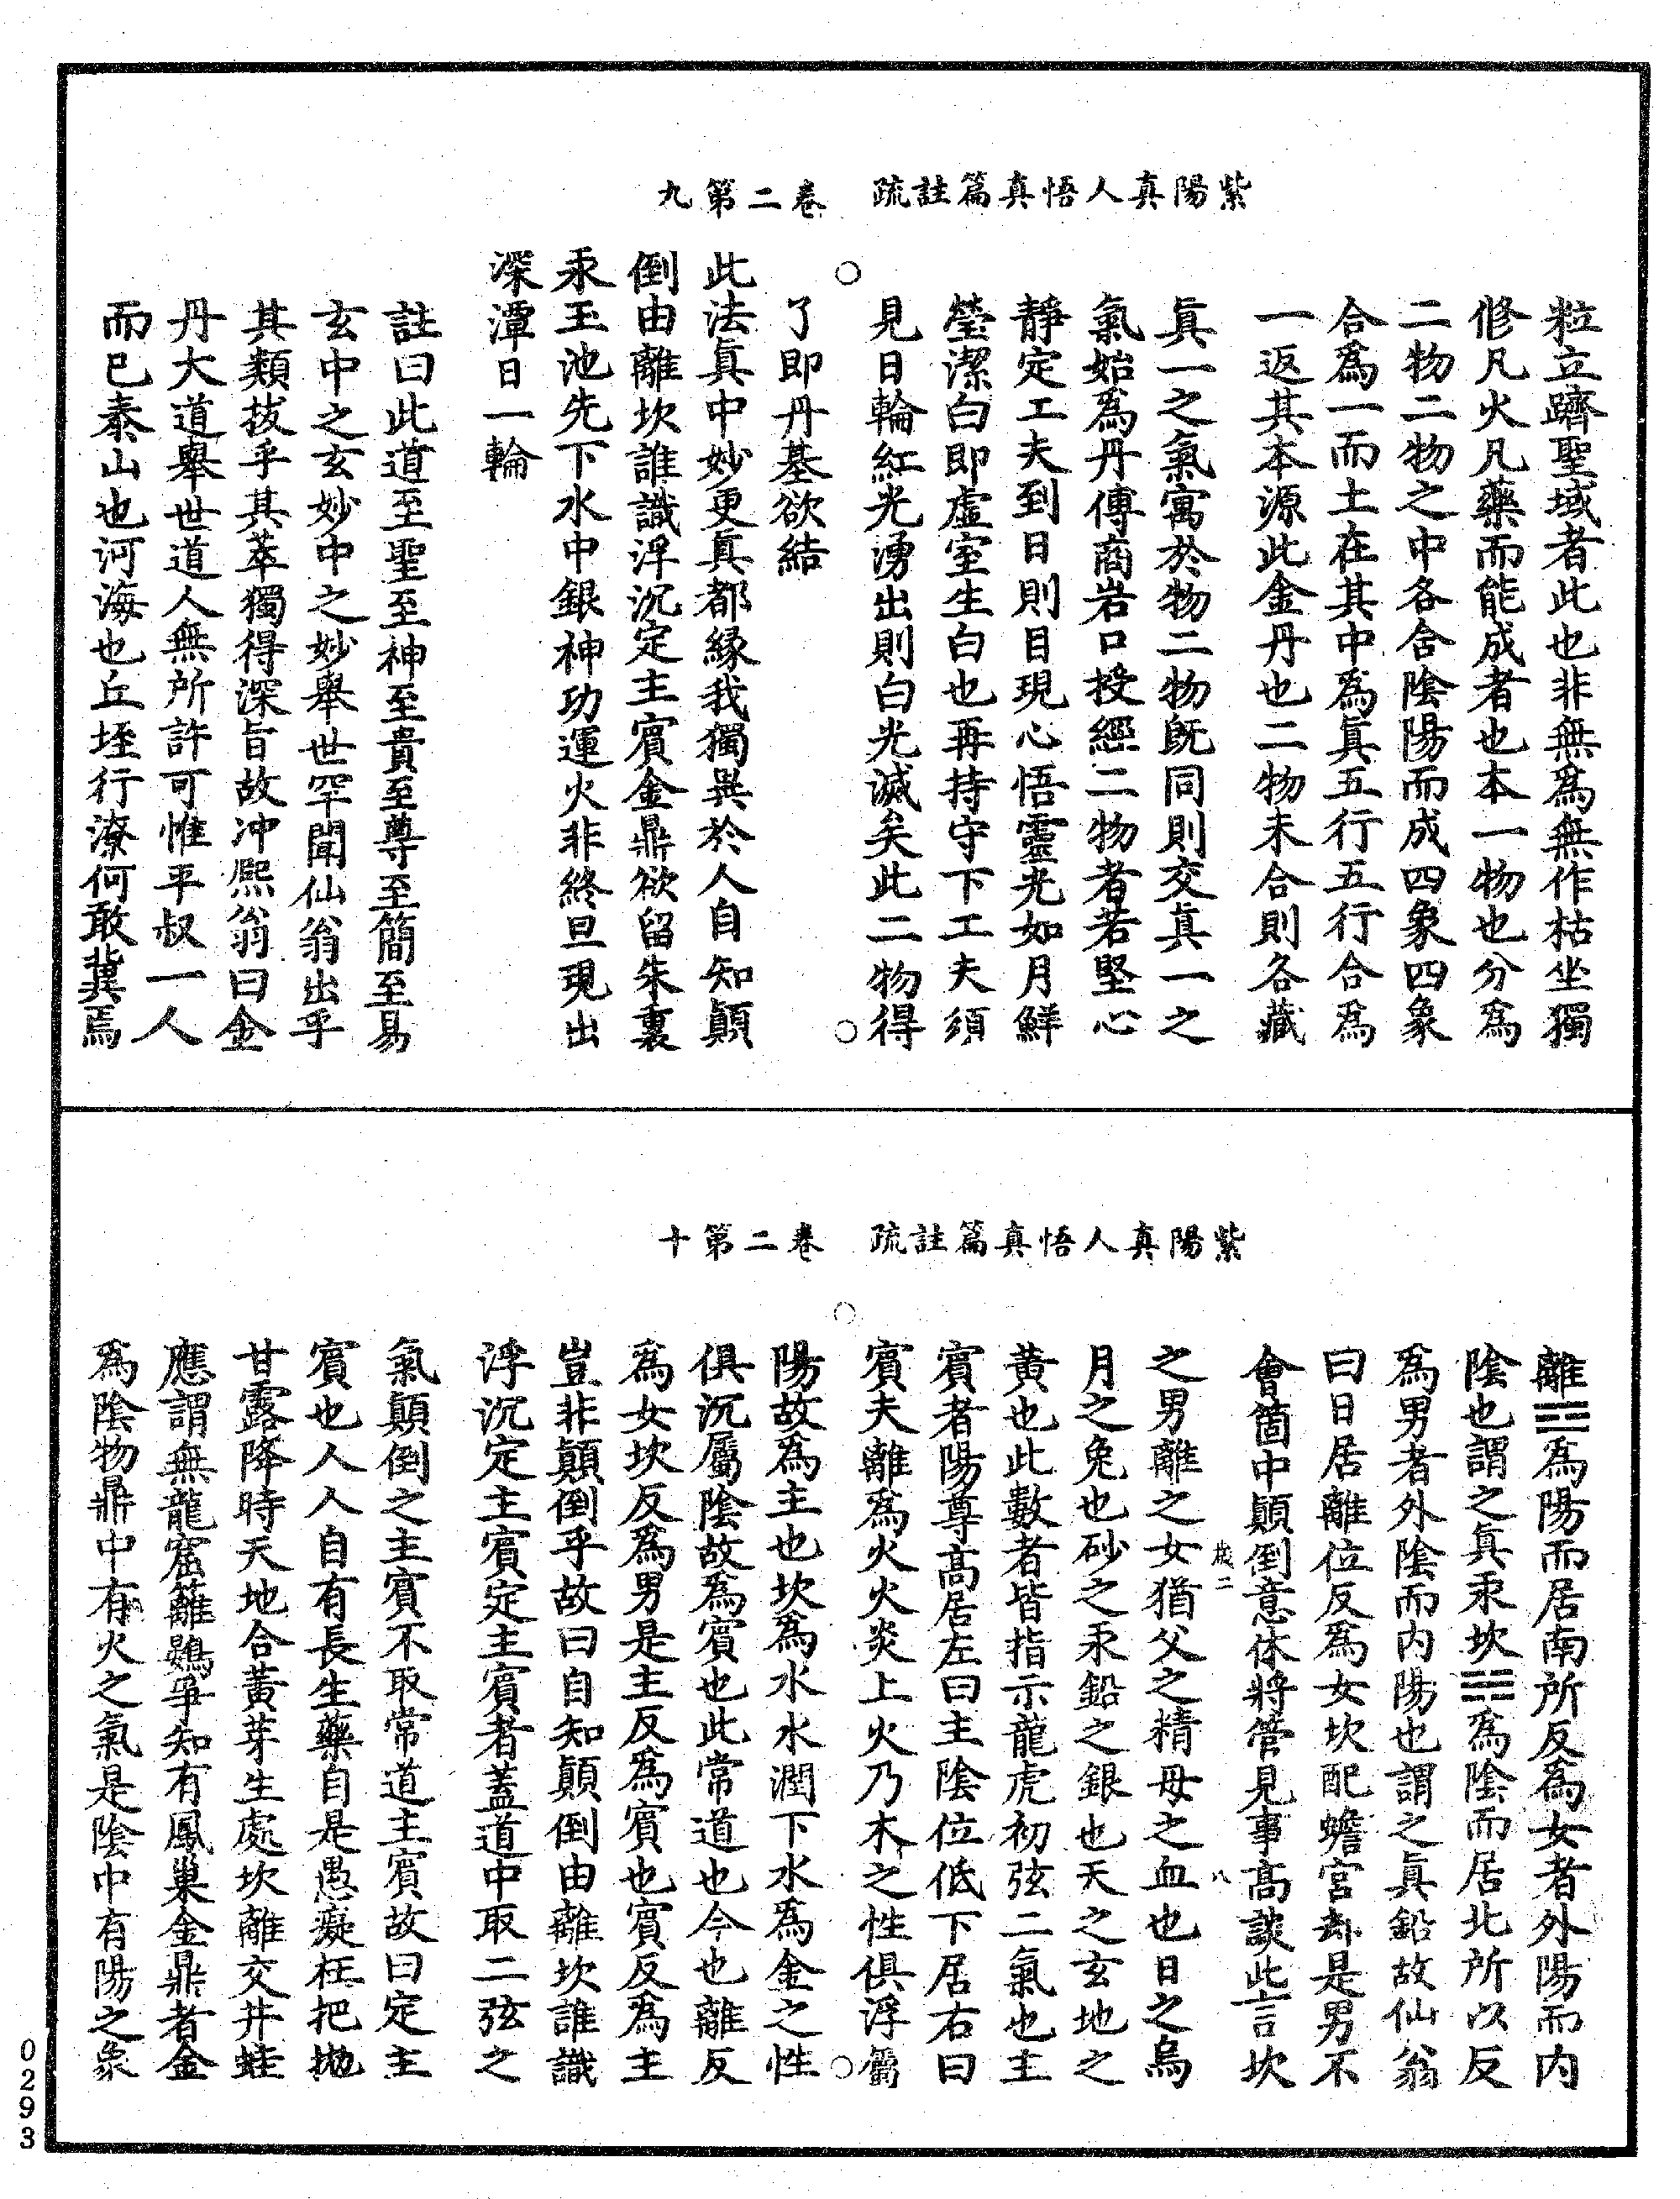 紫陽真人悟真篇註疏　卷二第九
粒立躋聖域者此也非無爲無作枯坐獨
修凡火凡藥而能成者也本一物也分爲
二物二物之中各含陰陽而成四象四象
合爲一而土在其中爲真五行五行合爲
一返其本源此金丹也二物未合則各藏
真一之氣寓於物二物既同則交真一之
氣始爲丹傳商岩口授經二物者若堅心
靜定工夫到日則目現心悟靈光如月鮮
瑩潔白即虛室生白也再持守下工夫須
見日輪紅光湧出則白光滅矣此二物得
了即丹基欲結
此法真中妙更真都緣我獨異於人自知顛
倒由離坎誰識浮沉定主賓金鼎欲留朱裏
汞玉池先下水中銀神功運火非終旦現出
深潭日一輪
註曰此道至聖至神至貴至尊至簡至易
玄中之玄妙中之妙舉世罕聞仙翁出乎
其類拔乎其萃獨得深旨故冲熙翁曰金
丹大道舉世道人無所許可惟平叔一人
而已泰山也河海也丘垤行潦何敢冀焉
紫陽真人悟真篇註疏　卷二第十
離☲爲陽而居南所反爲女者外陽而内
陰也謂之真汞坎☵爲陰而居北所以反
爲男者外陰而内陽也謂之真鉛故仙翁
曰日居離位反爲女坎配蟾宮却是男不
會箇中顛倒意休將管見事高談此言坎
歲二　八
之男離之女猶父之精母之血也日之烏
月之兔也砂之汞鉛之銀也天之玄地之
黃也此數者皆指示龍虎初弦二氣也主
賓者陽尊高居左曰主陰位低下居右曰
賓夫離爲火火炎上火乃木之性俱浮屬
陽故爲主也坎爲水水潤下水爲金之性
俱沉屬陰故爲賓也此常道也今也離反
爲女坎反爲男是主反爲賓也賓反爲主
豈非顛倒乎故曰自知顛倒由離坎誰識
浮沉定主賓定主賓者蓋道中取二弦之
氣顛倒之主賓不取常道主賓故曰定主
賓也人人自有長生藥自是愚癡枉把拋
甘露降時天地合黃芽生處坎離交井蛙
應謂無龍窟籬鷃爭知有鳳巢金鼎者金
爲陰物鼎中有火之氣是陰中有陽之象
0293